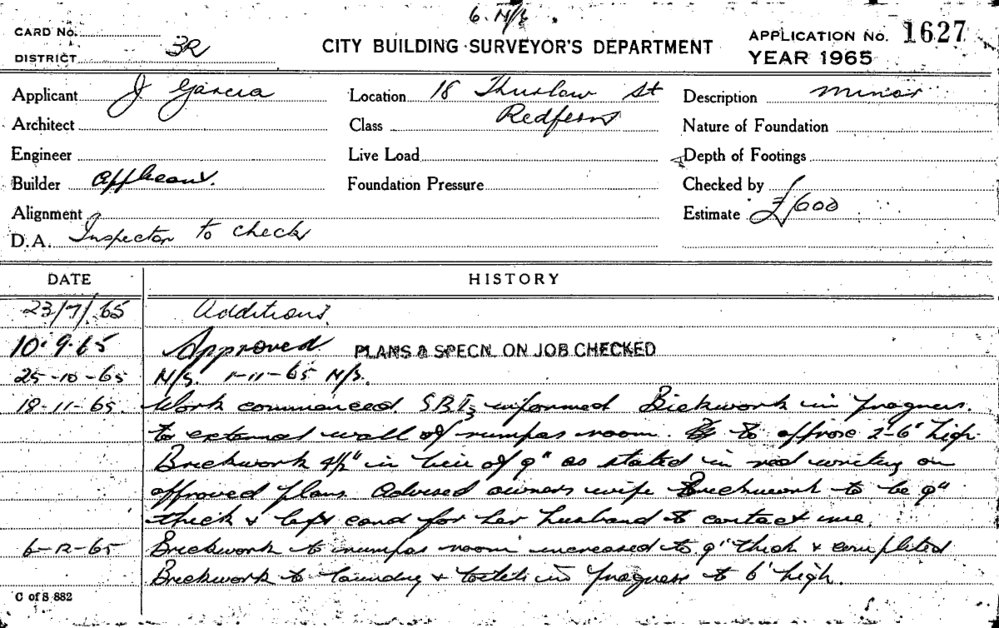 6. N/S.
CARD No.
DISTRICT 3R
CITY BUILDING SURVEYOR'S DEPARTMENT
APPLICATION No. 1627
YEAR 1965
Applicant J Garcia
Location 18 Thurlow St
Redfern
Description minor
Architect
Class
Nature of Foundation
Engineer
Live Load
Depth of Footings
Builder Applicant.
Foundation Pressure
Checked by
Alignment
Estimate £600
D.A. Inspector to check
DATE HISTORY
23/7/65 Additions.
10.9.65 Approved PLANS & SPECN. ON JOB CHECKED
25-10-65 N/S. 1-11-65 N/S.
18-11-65 Work commenced. informed Brickwork in progress.
to external wall of rumpas room. to approx 2'-6" high
Brickwork 4½" in lieu of 9" as stated in red writing on
approved plans. Advised owners wife Brickwork to be 9"
thick & left card for her husband to contact me.
6-12-65 Brickwork to rumpas room increased to 9" thick & completed
Brickwork to laundry & toilets in progress to 6' high.
C of S 882